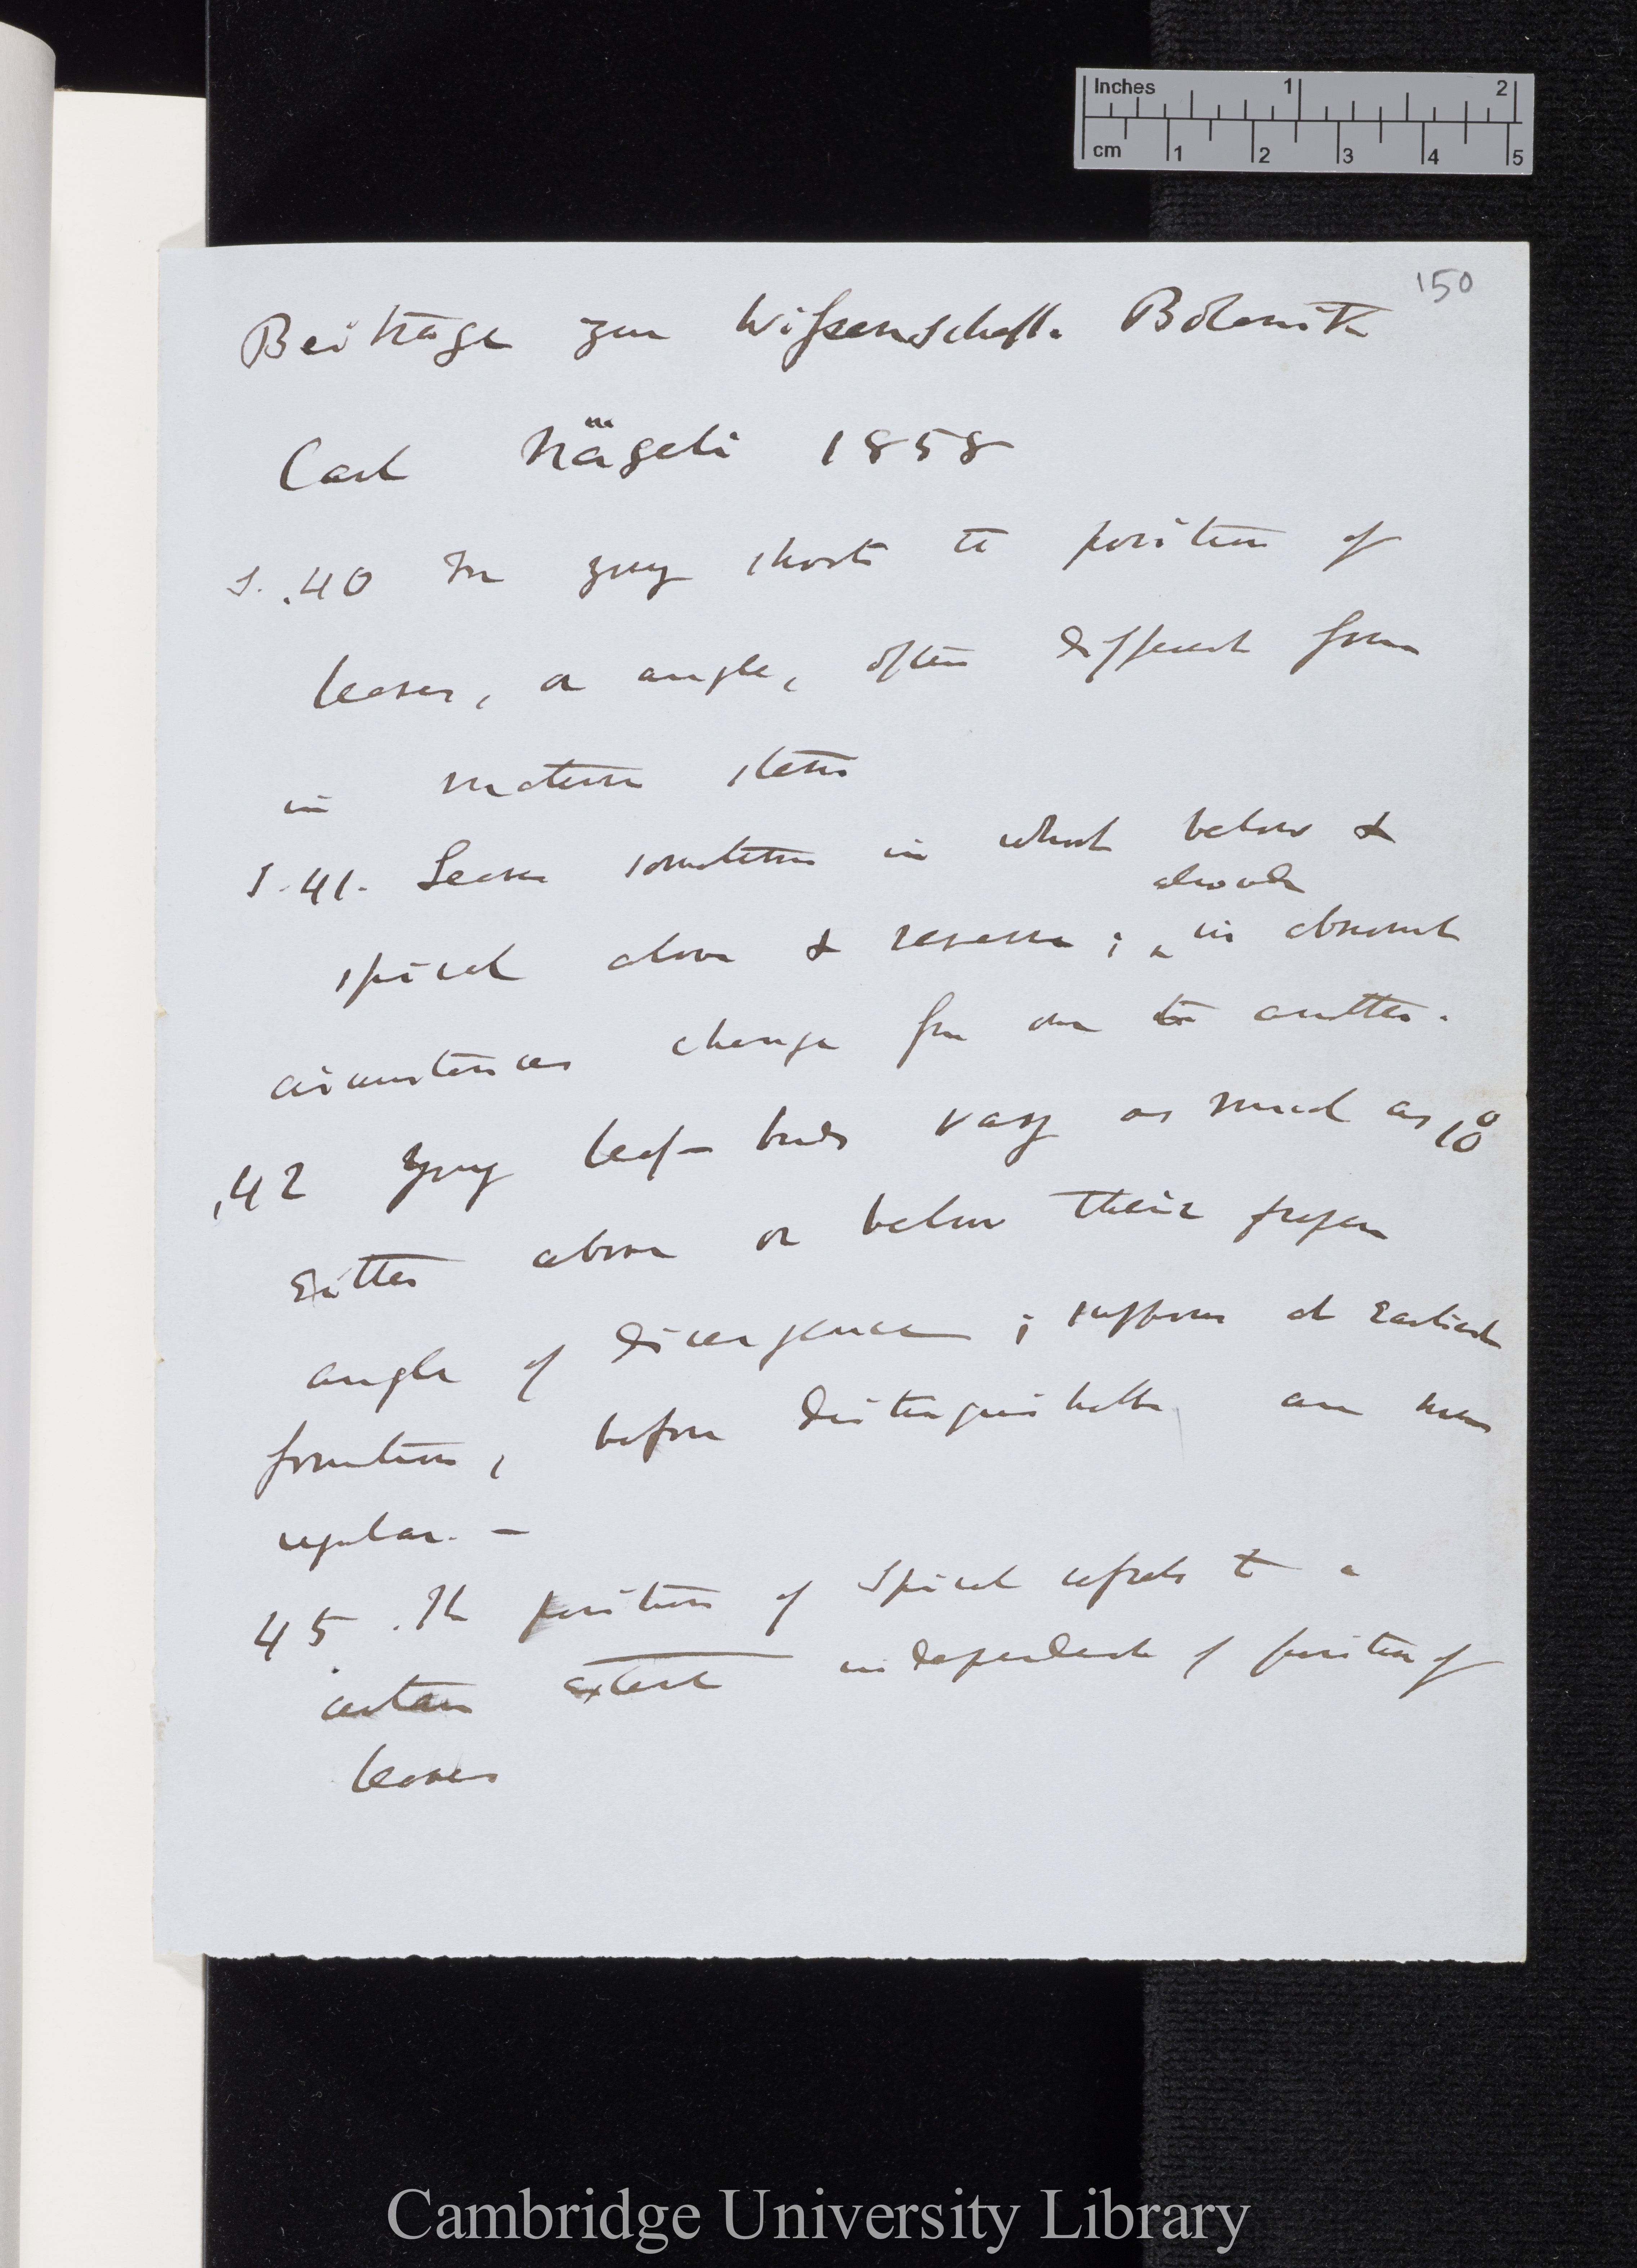 Inches 1 2
cm 1 2 3 4 5
150
Beiträge zur Wissenschaft. Botanik
Carl Nägeli 1858
S. .40 In young shoots the position of
leaves, or angle, often different from
in mature state
S. 41. Leaves sometimes in whorl below &
already
spiral above & reverse; in abnormal
circumstances change from one to another.
,42 Young leaf-buds vary as much as 10°
Either above or below their proper
angle of divergence; suppose at Earliest
formation, before distinguishable are more
regular. —
45. The position of Spiral
certain extent independent of position of
leaves
Cambridge University Library